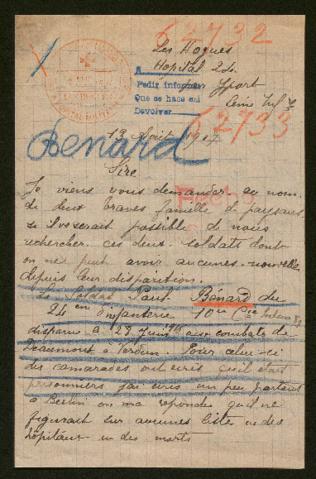 62732
Les Hogues
Hopital 24
A
Pedir informes
Yport
Que se hace sai
Seine Inf re
Devolver
62733
13 Août 1917
Bénard
Sire
Je viens vous demander au nom
de deux braves famille de paysans
se il vous serait possible de nous
rechercher ces deux soldats dont
on ne peut avoir aucunes nouvelles
depuis leur disparition.
Le Soldat Paul Bénard du
24 em d'infanterie 10me Cie
disparu à 29 Juin aux combats de
Beaumont à Verdun Pour celui-ci
des camarades ont écris qu'il était
prisonniers j'ai écris un peu partout
à Berlin on m'a repondus qu'il ne
figurait sur aucunes liste ni des
hôpitaux ni des morts